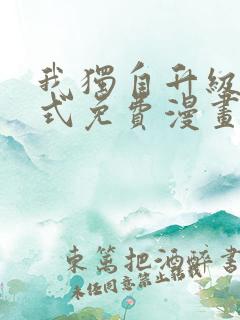 我獨自升級
式免費漫畫
東篱把酒醉書
未经同意禁止轉載